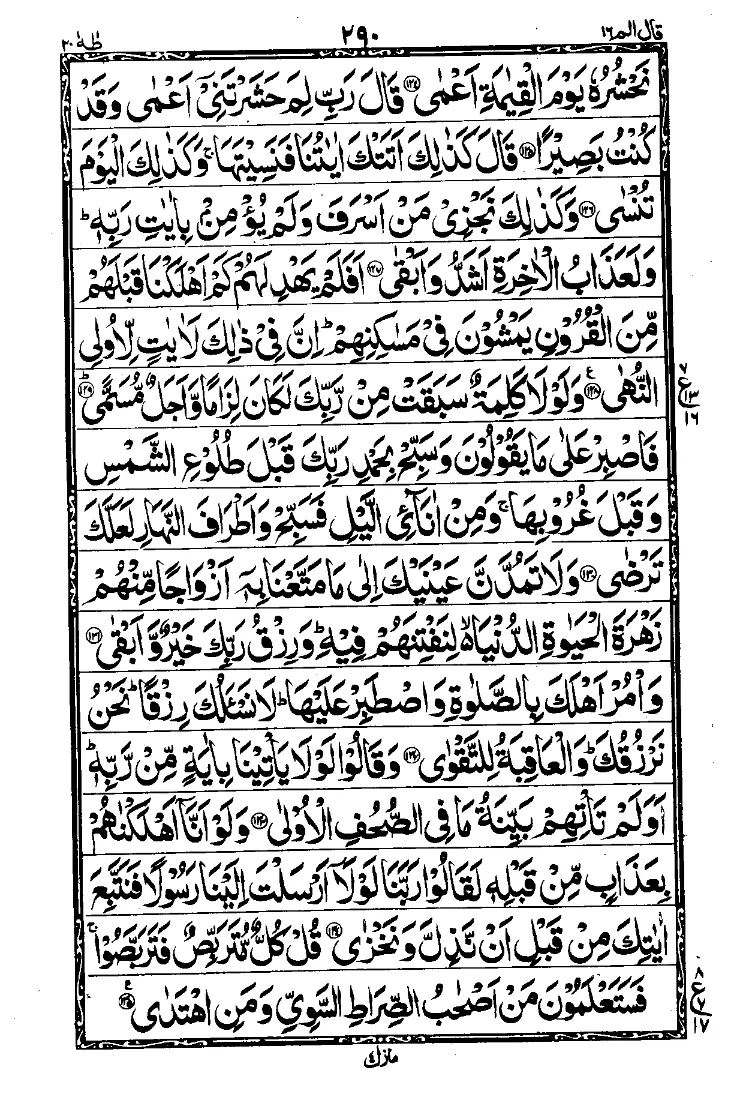 قال الم ١٦ ٢٩٠ طٰهٰ ٢٠
نَحْشُرُهٗ يَوْمَ الْقِيٰمَةِ اَعْمٰى ﴿١٢٤﴾ قَالَ رَبِّ لِمَ حَشَرْتَنِيْۤ اَعْمٰى وَقَدْ
كُنْتُ بَصِيْرًا ﴿١٢٥﴾ قَالَ كَذٰلِكَ اَتَتْكَ اٰيٰتُنَا فَنَسِيْتَهَا ۚ وَكَذٰلِكَ الْيَوْمَ
تُنْسٰى ﴿١٢٦﴾ وَكَذٰلِكَ نَجْزِيْ مَنْ اَسْرَفَ وَلَمْ يُؤْمِنْۢ بِاٰيٰتِ رَبِّهٖ ؕ
وَلَعَذَابُ الْاٰخِرَةِ اَشَدُّ وَاَبْقٰى ﴿١٢٧﴾ اَفَلَمْ يَهْدِ لَهُمْ كَمْ اَهْلَكْنَا قَبْلَهُمْ
مِّنَ الْقُرُوْنِ يَمْشُوْنَ فِيْ مَسٰكِنِهِمْ ؕ اِنَّ فِيْ ذٰلِكَ لَاٰيٰتٍ لِّاُولِي
النُّهٰى ﴿١٢٨﴾ ع وَلَوْلَا كَلِمَةٌ سَبَقَتْ مِنْ رَّبِّكَ لَكَانَ لِزَامًا وَّاَجَلٌ مُّسَمًّى ؕ ﴿١٢٩﴾
٧ ع ١٣ ١٦
فَاصْبِرْ عَلٰى مَا يَقُوْلُوْنَ وَسَبِّحْ بِحَمْدِ رَبِّكَ قَبْلَ طُلُوْعِ الشَّمْسِ
وَقَبْلَ غُرُوْبِهَا ۚ وَمِنْ اٰنَآئِ الَّيْلِ فَسَبِّحْ وَاَطْرَافَ النَّهَارِ لَعَلَّكَ
تَرْضٰى ﴿١٣٠﴾ وَلَا تَمُدَّنَّ عَيْنَيْكَ اِلٰى مَا مَتَّعْنَا بِهٖۤ اَزْوَاجًا مِّنْهُمْ
زَهْرَةَ الْحَيٰوةِ الدُّنْيَا ۙ لِنَفْتِنَهُمْ فِيْهِ ؕ وَرِزْقُ رَبِّكَ خَيْرٌ وَّاَبْقٰى ﴿١٣١﴾
وَاْمُرْ اَهْلَكَ بِالصَّلٰوةِ وَاصْطَبِرْ عَلَيْهَا ؕ لَا نَسْئَلُكَ رِزْقًا ؕ نَحْنُ
نَرْزُقُكَ ؕ وَالْعَاقِبَةُ لِلتَّقْوٰى ﴿١٣٢﴾ وَقَالُوْا لَوْلَا يَاْتِيْنَا بِاٰيَةٍ مِّنْ رَّبِّهٖ ؕ
اَوَلَمْ تَاْتِهِمْ بَيِّنَةُ مَا فِي الصُّحُفِ الْاُوْلٰى ﴿١٣٣﴾ وَلَوْ اَنَّاۤ اَهْلَكْنٰهُمْ
بِعَذَابٍ مِّنْ قَبْلِهٖ لَقَالُوْا رَبَّنَا لَوْلَاۤ اَرْسَلْتَ اِلَيْنَا رَسُوْلًا فَنَتَّبِعَ
اٰيٰتِكَ مِنْ قَبْلِ اَنْ نَّذِلَّ وَنَخْزٰى ﴿١٣٤﴾ قُلْ كُلٌّ مُّتَرَبِّصٌ فَتَرَبَّصُوْا ۚ
فَسَتَعْلَمُوْنَ مَنْ اَصْحٰبُ الصِّرَاطِ السَّوِيِّ وَمَنِ اهْتَدٰى ﴿١٣٥﴾ ع
٨ ع ٧ ١٧